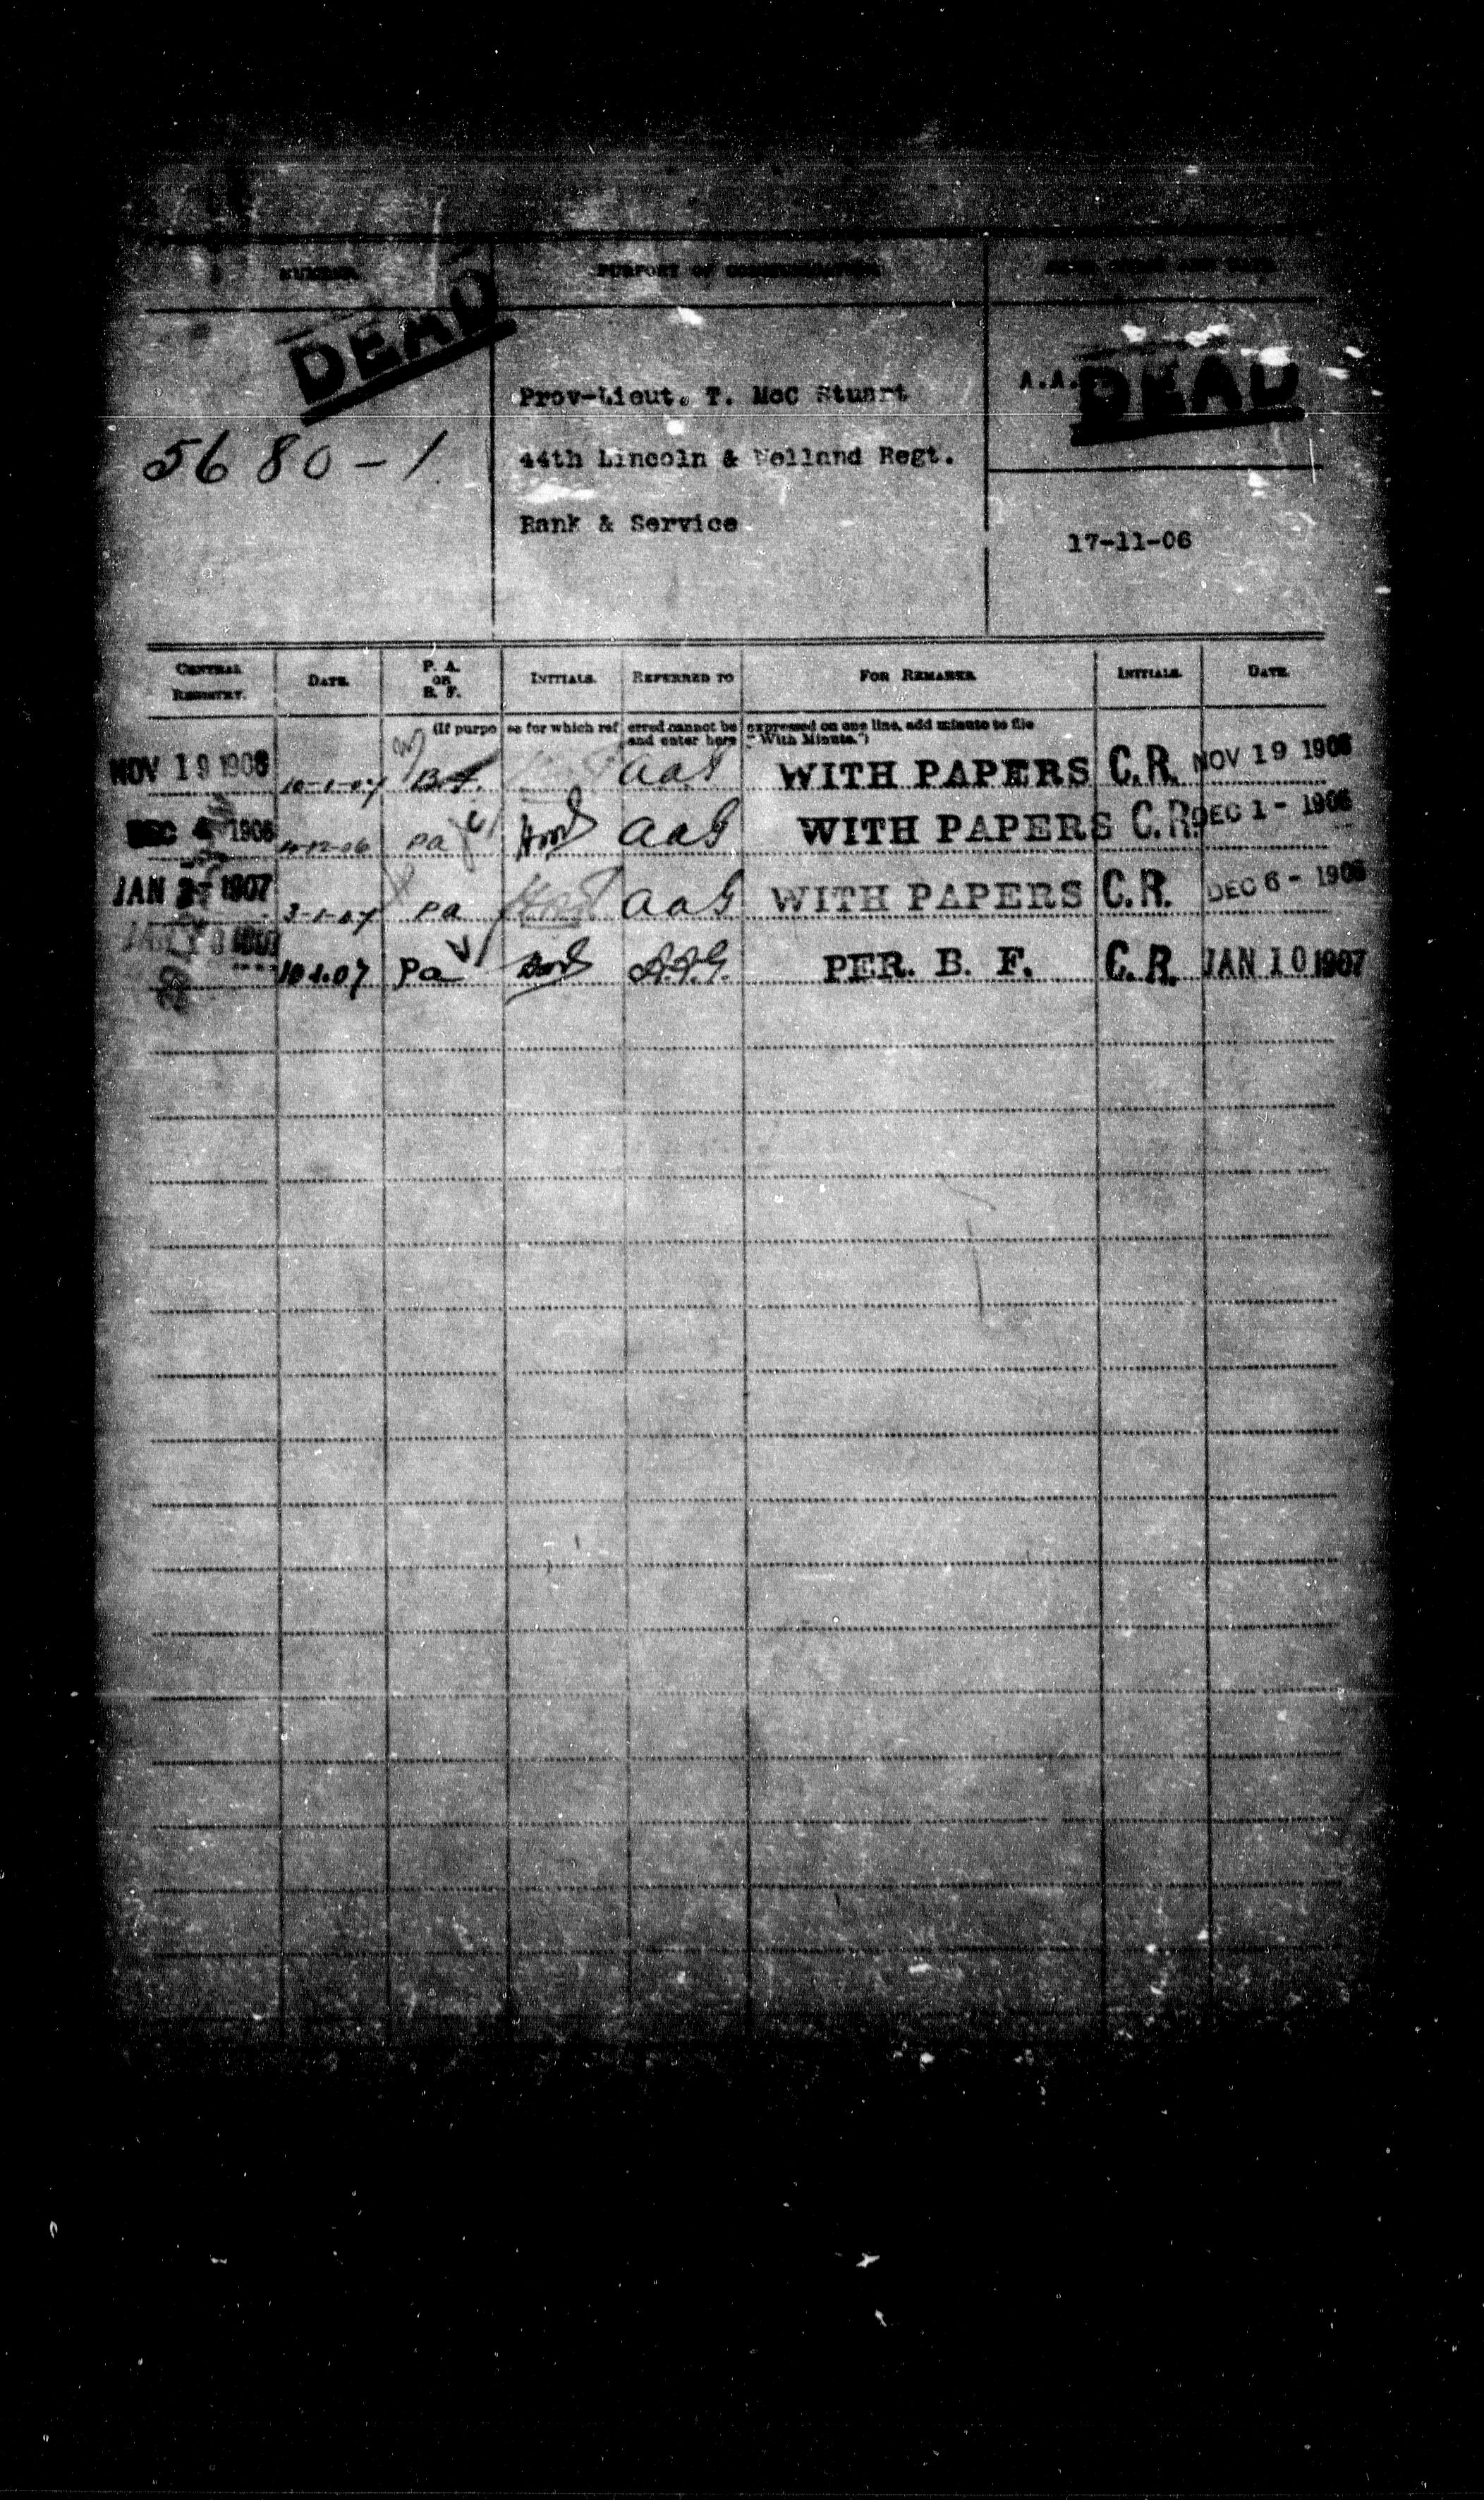 NUMBER. PURPORT OF COMMUNICATION
DEAD
DEAD
A.A.
5680-1
Prov-Lieut. T. McC Stuart
44th Lincoln & Welland Regt.
Rank & Service
17-11-06
CENTRAL REGISTRY. DATE. P. A. OR B. F. INITIALS. REFERRED TO FOR REMARKS. INITIALS. DATE.
(If purpose for which referred cannot be expressed on one line, add minute to file
and enter here "With Minute.")
NOV 19 1906 10-1-07 B.F. AAG WITH PAPERS C.R. NOV 19 1906
DEC 4 1906 4-12-06 Pa AAG WITH PAPERS C.R. DEC 1 - 1906
JAN 3 - 1907 3-1-07 Pa AAG WITH PAPERS C.R. DEC 6 - 1906
JAN 10 1907 10.1.07 Pa A.A.G. PER. B. F. C.R. JAN 10 1907